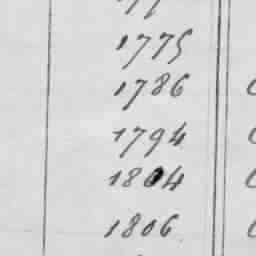 1775
1786
1794
1804
1806